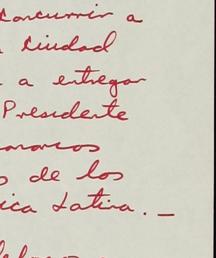 concurrir a
ciudad
a entregar
Presidente
de los
ica Latina. _